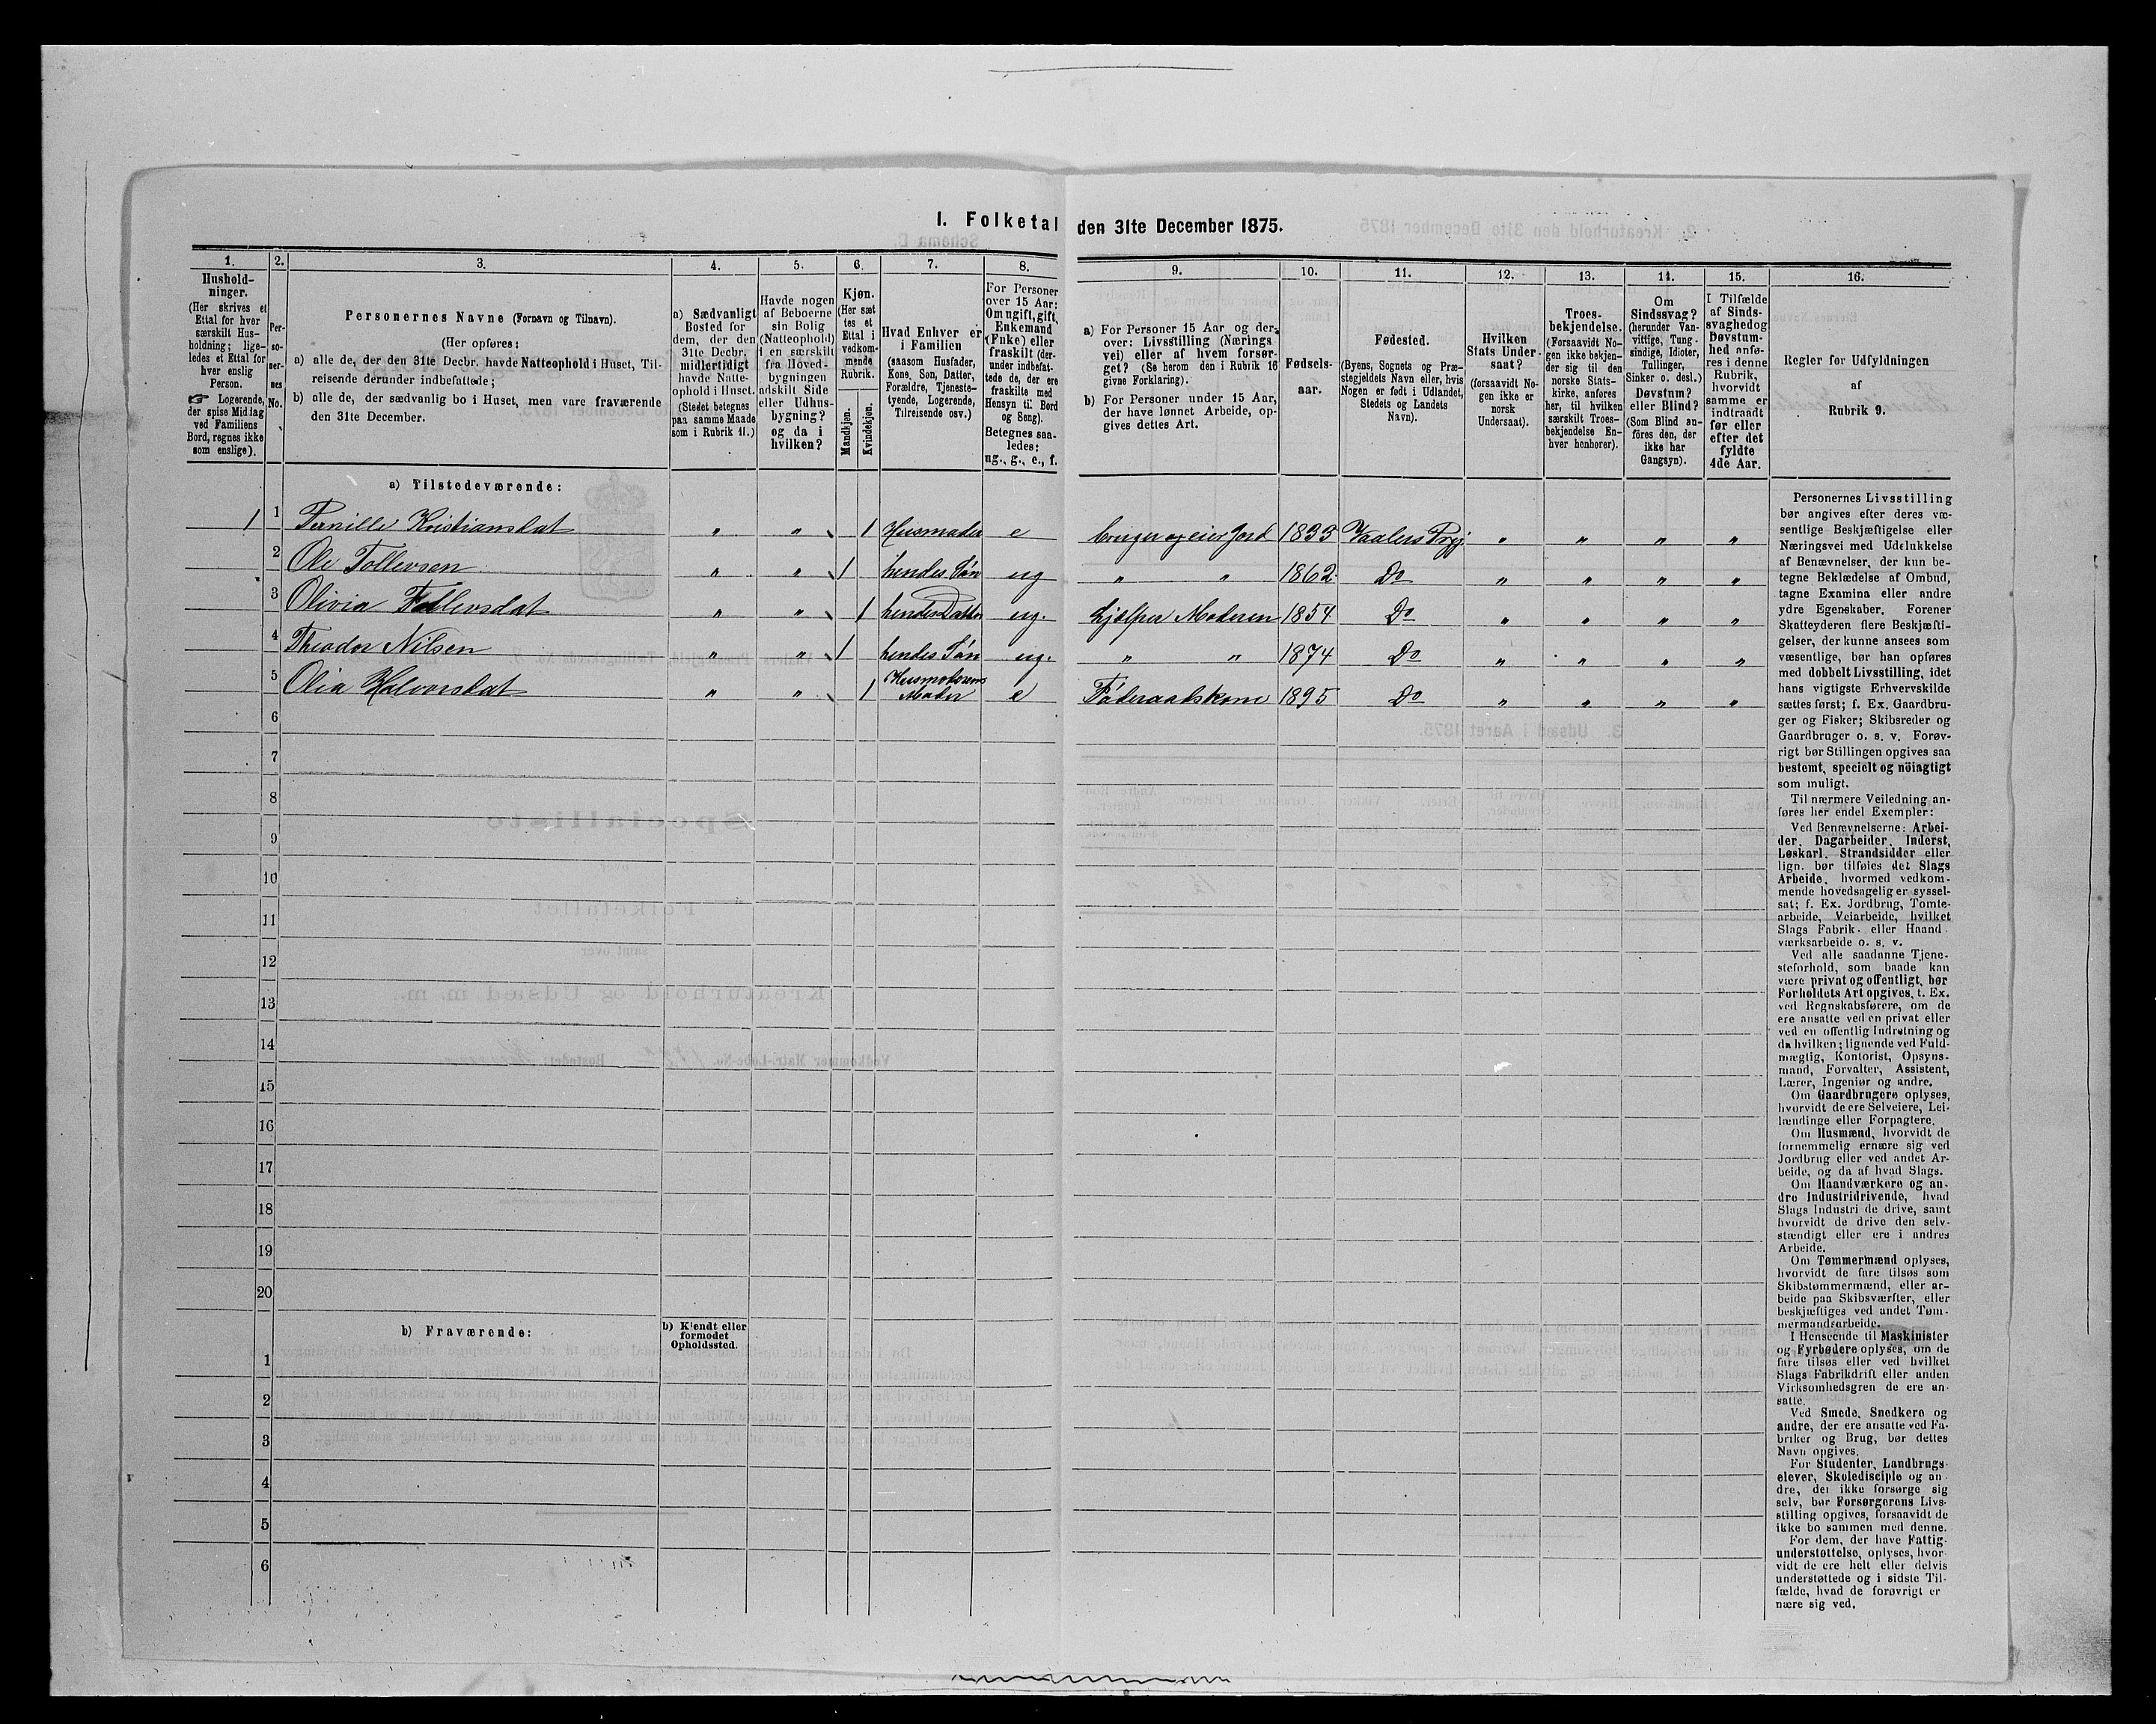 I. Folketal den 31te December 1875.
1. 2. 3. 4. 5. 6. 7. 8. 9. 10. 11. 12. 13. 14. 15. 16.
Hushold-
ninger.
(Her skrives et
Ettal for hver
særskilt Hus-
holdning; lige-
ledes et Ettal for
hver enslig
Person.
☞ Logerende,
der spise Middag
ved Familiens
Bord, regnes ikke
som enslige).
Per-
so-
ner-
nes
No.
Personernes Navne (Fornavn og Tilnavn).
(Her opføres:
a) alle de, der den 31te Decbr. havde Natteophold i Huset, Til-
reisende derunder indbefattede;
b) alle de, der sædvanlig bo i Huset, men vare fraværende
den 31te December.
a) Sædvanligt
Bosted for
dem, der den
31te Decbr.
midlertidigt
havde Natte-
ophold i Huset.
(Stedet betegnes
paa samme Maade
som i Rubrik 11.)
Havde nogen
af Beboerne
sin Bolig
(Natteophold)
i en særskilt
fra Hoved-
bygningen
adskilt Side
eller Udhus-
bygning?
og da i
hvilken?
Kjøn.
(Her sæt
tes et
Ettal i
vedkom-
mende
Rubrik.
Mandkjøn.
Kvindekjøn.
Hvad Enhver er
i Familien
(saasom Husfader,
Kone, Søn, Datter,
Forældre, Tjeneste-
tyende, Logerende,
Tilreisende osv.)
For Personer
over 15 Aar:
Om ugift, gift,
Enkemand
(Enke) eller
fraskilt (der-
under indbefat-
tede de, der ere
fraskilte med
Hensyn til Bord
og Seng).
Betegnes saa-
ledes:
ug., g., e., f.
a) For Personer 15 Aar og der-
over: Livsstilling (Nærings
vei) eller af hvem forsør-
get? (Se herom den i Rubrik 16
givne Forklaring).
b) For Personer under 15 Aar,
der have lønnet Arbeide, op-
gives dettes Art.
Fødsels-
aar.
Fødested.
(Byens, Sognets og Præ-
stegjeldets Navn eller, hvis
Nogen er født i Udlandet,
Stedets og Landets
Navn).
Hvilken
Stats Under-
saat?
(forsaavidt No-
gen ikke er
norsk
Undersaat).
Troes-
bekjendelse.
(Forsaavidt No-
gen ikke bekjen-
der sig til den
norske Stats-
kirke, anføres
her, til hvilken
særskilt Troes-
bekjendelse En-
hver henhører).
Om
Sindssvag?
(herunder Van-
vittige, Tung-
sindige, Idioter,
Tullinger,
Sinker o. desl.)
Døvstum?
eller Blind?
(Som Blind an-
føres den, der
ikke har
Gangsyn).
I Tilfælde
af Sinds-
svaghed og
Døvstum-
hed anfø-
res i denne
Rubrik,
hvorvidt
samme er
indtraadt
før eller
efter det
fyldte
4de Aar.
Regler for Udfyldningen
af
Rubrik 9.
a) Tilstedeværende:
1 1 Pernille Kristiansdat " " 1 Husmoder e bruger og eier Jord 1833 Vaalers Prgj " " " "
2 Ole Tollevsen " " 1 hendes Søn ug " " 1862 Do " " " "
3 Olivia Tollevsdat " " 1 hendes Datter ug. hjælper Moderen 1854 Do " " " "
4 Theodor Nilsen " " 1 hendes Søn ug. " " 1874 Do " " " "
5 Olia Halvorsdat " " 1 Husmoderens Moder e Føderaadskone 1895 Do " " " "
6
7
8
9
10
11
12
13
14
15
16
17
18
19
20
b) Fraværende:
b) Kjendt eller
formodet
Opholdssted.
1
2
3
4
5
6
Personernes Livsstilling
bør angives efter deres væ-
sentlige Beskjæftigelse eller
Næringsvei med Udelukkelse
af Benævnelser, der kun be-
tegne Beklædelse af Ombud,
tagne Examina eller andre
ydre Egenskaber. Forener
Skatteyderen flere Beskjæfti-
gelser, der kunne ansees som
væsentlige, bør han opføres
med dobbelt Livsstilling, idet
hans vigtigste Erhvervskilde
sættes først; f. Ex. Gaardbru-
ger og Fisker; Skibsreder og
Gaardbruger o. s. v. Forøv-
rigt bør Stillingen opgives saa
bestemt, specielt og nöiagtigt
som muligt.
Til nærmere Veiledning an-
føres her endel Exempler:
Ved Benævnelserne: Arbei-
der, Dagarbeider, Inderst,
Løskarl, Strandsidder eller
lign. bør tilføies det Slags
Arbeide, hvormed vedkom-
mende hovedsagelig er syssel-
sat; f. Ex. Jordbrug, Tomte-
arbeide, Veiarbeide, hvilket
Slags Fabrik- eller Haand-
værksarbeide o. s. v.
Ved alle saadanne Tjene-
steforhold, som baade kan
være privat og offentligt, bør
Forholdets Art opgives, t. Ex.
ved Regnskabsførere, om de
ere ansatte ved en privat eller
ved en offentlig Indretning og
da hvilken; lignende ved Fuld-
mægtig, Kontorist, Opsyns-
mand, Forvalter, Assistent,
Lærer, Ingeniør og andre.
Om Gaardbrugere oplyses,
hvorvidt de ere Selveiere, Lei-
lændinge eller Forpagtere.
Om Husmænd, hvorvidt de
fornemmelig ernære sig ved
Jordbrug eller ved andet Ar-
beide, og da af hvad Slags.
Om Haandværkere og an-
dre Industridrivende, hvad
Slags Industri de drive, samt
hvorvidt de drive den selv-
stændigt eller ere i andres
Arbeide.
Om Tømmermænd oplyses,
hvorvidt de fare tilsøs som
Skibstømmermænd, eller ar-
beide paa Skibsværfter, eller
beskjæftiges ved andet Tøm-
mermandsarbeide.
I Henseende til Maskinister
og Fyrbødere oplyses, om de
fare tilsøs eller ved hvilket
Slags Fabrikdrift eller anden
Virksomhedsgren de ere an-
satte.
Ved Smede, Snedkere og
andre, der ere ansatte ved Fa-
briker og Brug, bør dettes
Navn opgives.
For Studenter, Landbrugs-
elever, Skoledisciple og an-
dre, der ikke forsørge sig
selv, bør Forsørgerens Livs-
stilling opgives, forsaavidt de
ikke bo sammen med denne.
For dem, der have Fattig-
understøttelse, oplyses, hvor-
vidt de ere helt eller delvis
understøttede og i sidste Til-
fælde, hvad de forøvrigt er
nære sig ved.